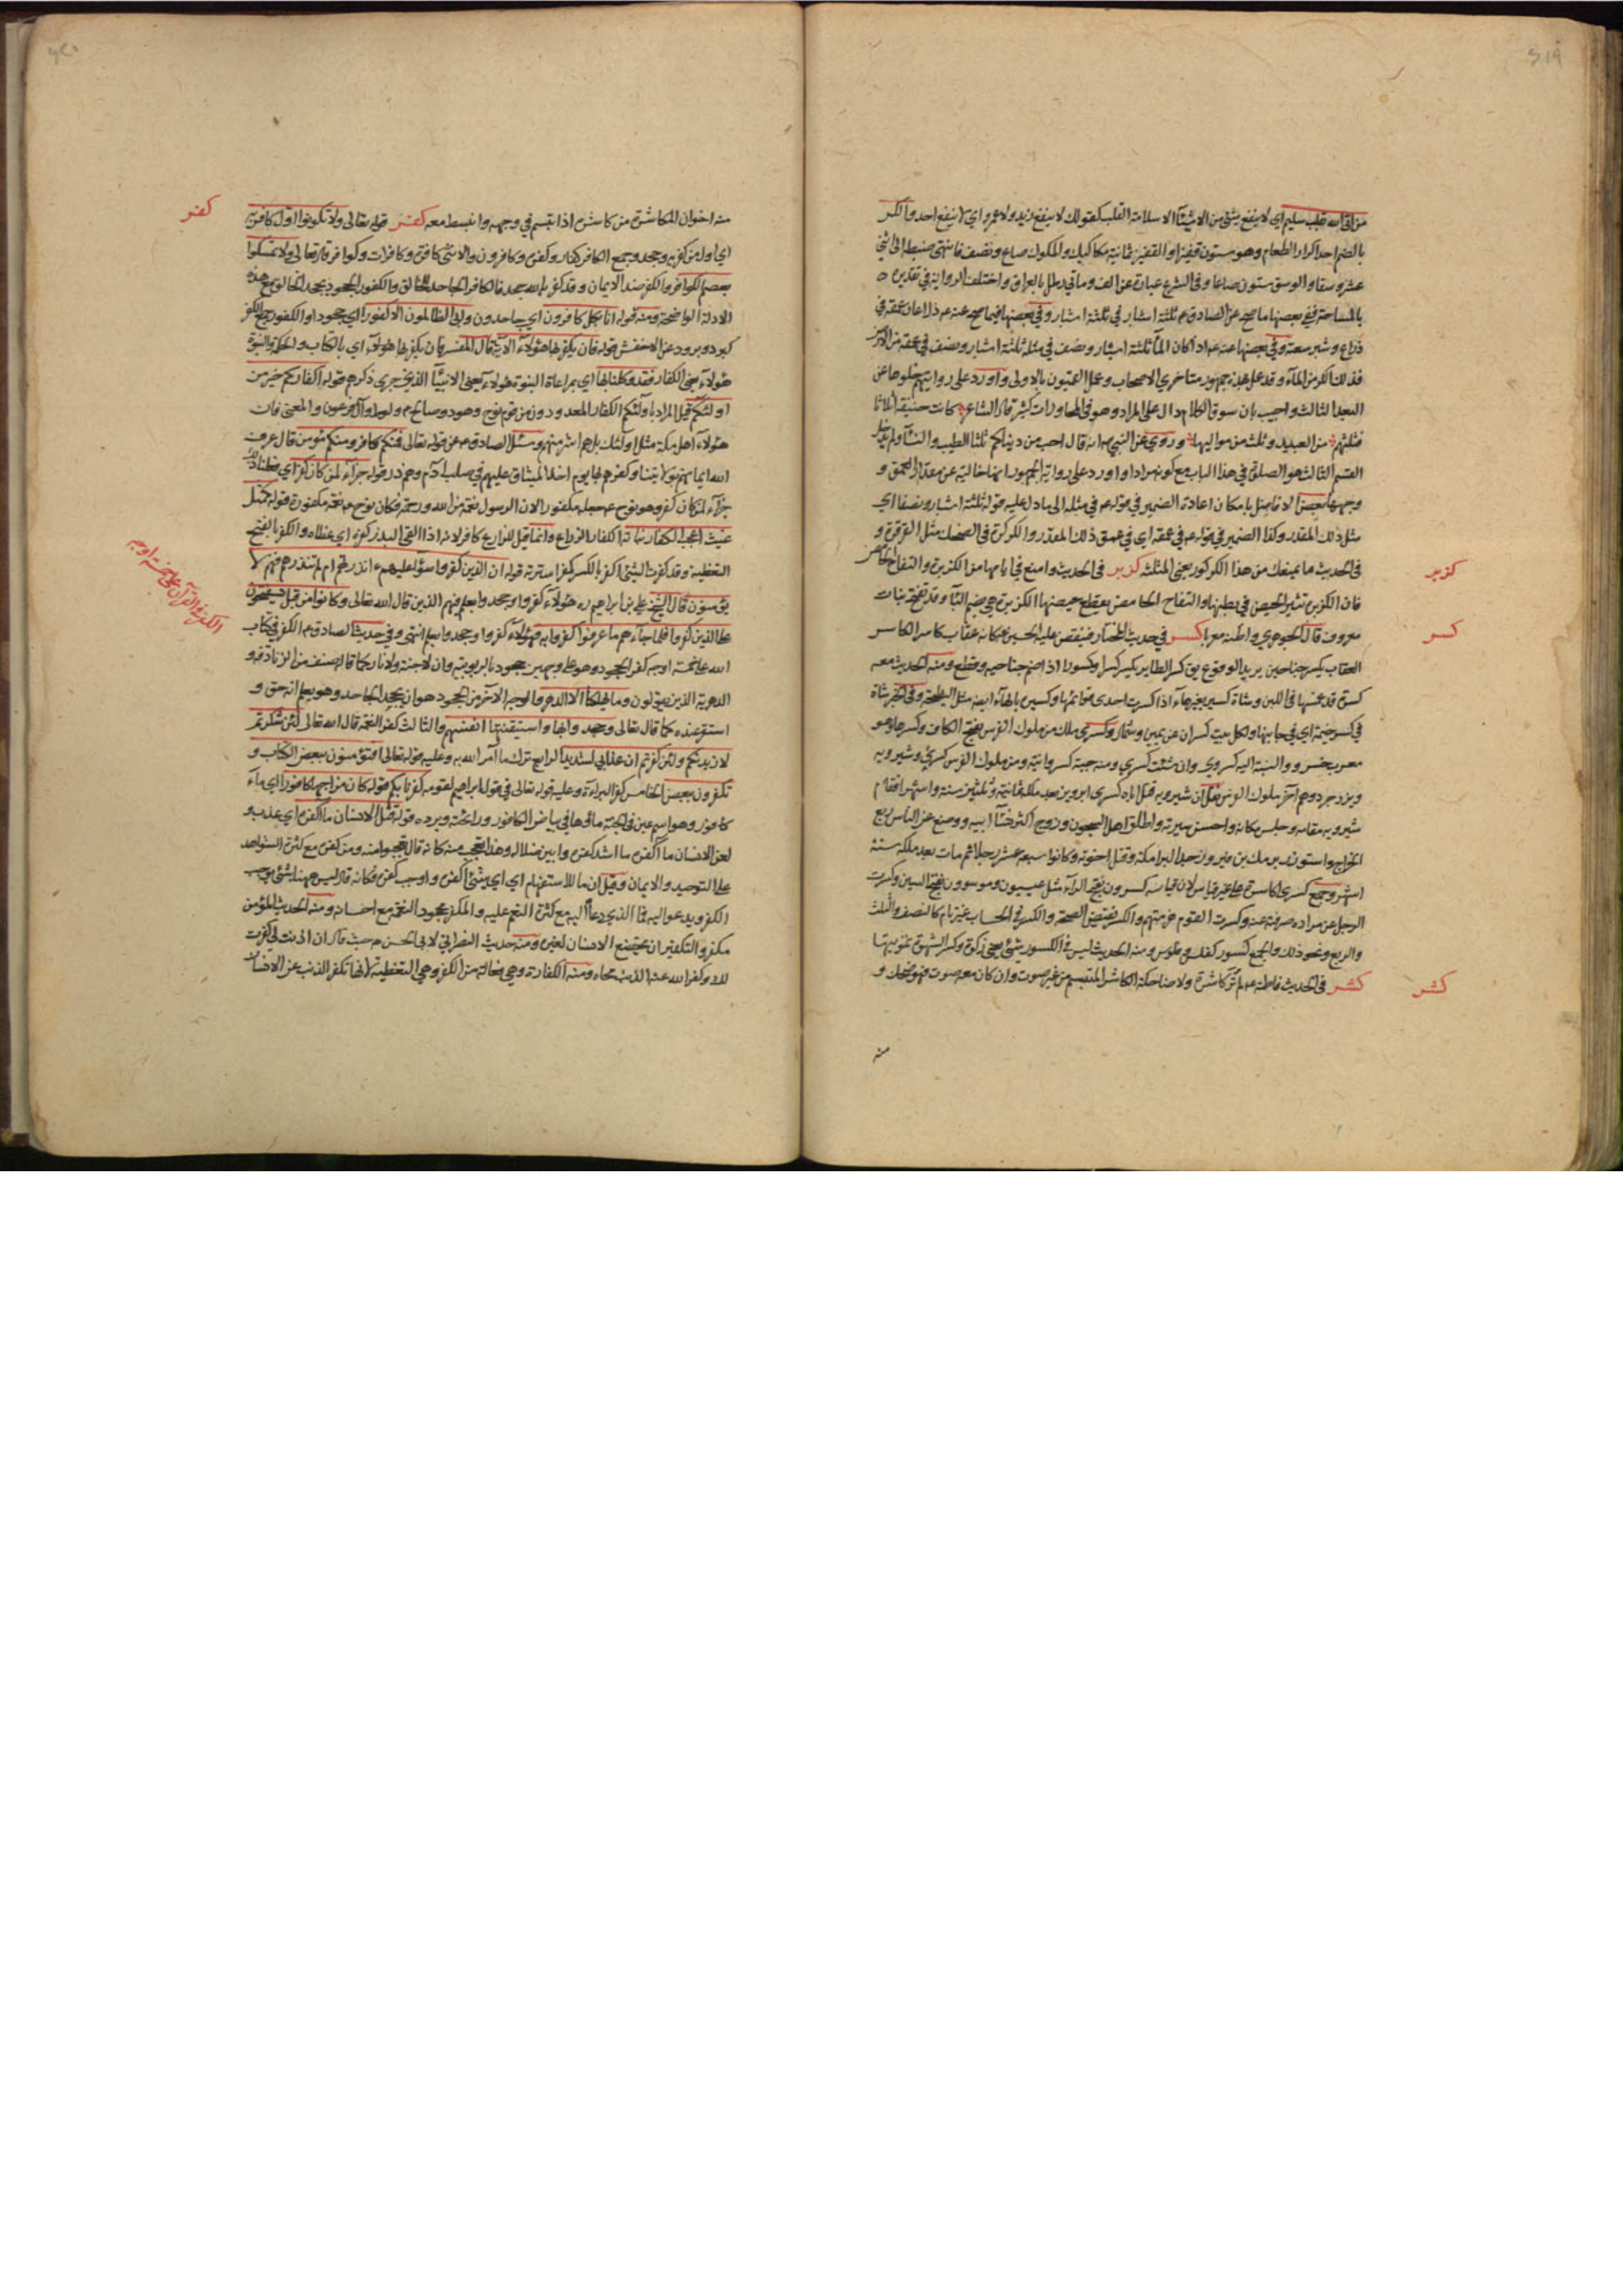 ٤١٩
من اتى الله بقلب سليم اي لا ينفع شئ من الاشيآء الا سلامة القلب كقولك لا ينفع زيد ولا عمرو اي لا ينفع احد والكر
بالضم احد اكرار الطعام وهو ستون قفيزا والقفيز ثمانية مكاكيك والمكوك صاع ونصف فانتهى ضبطه الى اثني
عشر وسقا والوسق ستون صاعا وفي الشرع عبارة عن الف ومأتي رطل بالعراقي واختلفت الرواية في تقديره
بالمساحة ففي بعضها ما صح عن الصادق ع ثلثة اشبار في ثلثة اشبار وفي بعضها فيما صح عنه ع ذراعان عمقه في
ذراع وشبر سعته وفي بعضها عنه ع اذا كان المآء ثلثة اشبار ونصف في مثله ثلثة اشبار ونصف في عمقه من الارض
فذلك الكر من المآء وقد عمل بهذه جمهور متاخري الاصحاب وعمل القميون بالاولى واورد على روايتهم خلوها عن
البعد الثالث واجيب بان سوق الكلام دال على المراد وهو في المحاورات كثير قال الشاعر كانت حنيفة اثلاثا
فثلثهم من العبيد وثلث من مواليها وروي عن النبي ص انه قال احب من دنياكم ثلثا الطيب والنسآء ولم يذكر
القسم الثالث هو الصلوة في هذا الباب مع كونه مرادا واورد على رواية الجمهور انها خالية عن مقدار العمق و
وجهها بعض الافاضل بامكان اعادة الضمير في قوله ع في مثله الى ما دل عليه قوله ثلثة اشبار ونصفا اي
مثل ذلك المقدر وكذا الضمير في قوله ع في عمقه اي في عمق ذلك المقدر والكركرة في الضحك مثل القرقرة و
في الحديث ما يمنعك من هذا الكركور يعني المثلثة كزبر في الحديث وامنع في ايامها من الكزبرة والتفاح الحامض
كزبر
فان الكزبرة تثير الحيض في بطنها والتفاح الحامض يقطع حيضها الكزبرة هي بضم البآء وقد تفتح نبات
معروف قال الجوهري واظنه معربا كسر في حديث المختار فينقض عليه الحسين ع كانه عقاب كاسر الكاسر
كسر
العقاب يكسر جناحين يريد الوقوع يق كسر الطاير يكسر كسرا وكسورا اذا ضم جناحيه وقطع ومنه الحديث معه
كسرة قد غمسها في اللبن وشاة كسير بغير هآء اذا كسرت احدى قوائمها وكسيرة بالهآء ايضه مثل النطيحة وفي الخبر شاة
في كسر خيمة اي في جانبها ولكل بيت كسران عن يمين وشمال وكسرى ملك من ملوك الفرس بفتح الكاف وكسرها وهو
معرب خسرو والنسبة اليه كسروي وان شئت كسري ومنه جبة كسروانية ومن ملوك الفرس كسرى وشيرويه
ويزد جرد وهم آخر ملوك الفرس نقل ان شيرويه قتل اباه كسرى ابرويز بعد ملكه ثمانية وثلثين سنة واشهر افقام
شيرويه مقامه وجلس مكانه واحسن سيرته واطلق اهل السجون وزوج اكثر نسآء ابيه ووضع عن الناس ربع
الخراج واستوزر برمك بن فيروز جد البرامكة وقتل اخوته وكانوا سبعة عشر رجلا ثم مات بعد ملكه ستة
اشهر وجمع كسرى اكاسرة على غير قياس لان قياسه كسرون بفتح الرآء مثل عيسون وموسون بفتح السين وكسرت
الرجل عن مراده صرفته عنه وكسرت القوم هزمتهم والكسر نقيض الصحة والكسر في الحساب غير تام كالنصف والثلث
والربع ونحو ذلك والجمع كسور كفلس وفلوس ومنه الحديث ليس في الكسور شئ يعني زكوة وكسر الشهوة تمويتها
كشر في الحديث فاطمة ع لم تر كاشرة ولا ضاحكة الكاشر المتبسم من غير صوت وان كان معه صوت فهو ضحك و
كشر
منه
٤٢٠
منه اخوان المكاشرة من كاشره اذا تبسم في وجهه وانبسط معه كفر قوله تعالى ولا تكونوا اول كافر به
كفر
اي اول من كفر به وجحد وجمع الكافر كفار وكفرة وكافرون والانثى كافرة وكافرات وكوافر قوله تعالى ولا تمسكوا
بعصم الكوافر والكفر ضد الايمان وقد كفر بالله جحد فالكافر الجاحد للخالق والكفور الجحود يجحد الخالق مع هذه
الادلة الواضحة ومنه قوله انا بكل كافرون اي جاحدون وابى الظالمون الا كفورا اي جحودا والكفور جمع الكفر
كبرد وبرود عن الاخفش قوله فان يكفر بها هؤلآء الاية قال المفسر فان يكفر بها هؤلآء اي بالكتاب والحكم والنبوة
هؤلآء يعني الكفار فقد وكلنا بها اي بمراعاة النبوة هؤلآء يعني الانبيآء الذين جرى ذكرهم قوله اكفاركم خير من
اولئكم قيل المراد باولئكم الكفار المعدودون من قوم نوح وهود وصالح ولوط وآل فرعون والمعنى فان
هؤلآء اهل مكة مثل اولئك بل هم اشر منهم وسئل الصادق ع عن قوله تعالى فمنكم كافر ومنكم مؤمن قال عرف
الله ايمانهم بولايتنا وكفرهم بها يوم اخذ الميثاق عليهم في صلب آدم وهم ذر قوله جزآء لمن كان كفر اي فعلنا ذلك
جزآء لمن كان كفر وهو نوح ع جعله مكفورا لان الرسول نعمة من الله ورحمة فكان نوح ع نعمة مكفورة قوله كمثل
غيث اعجب الكفار نباته الكفار الزراع وانما قيل للزارع كافر لانه اذا القى البذر كفره اي غطاه والكفر بالفتح
التغطية وقد كفرت الشئ اكفره بالكسر كفرا سترته قوله ان الذين كفروا سوآء عليهم ءانذرتهم ام لم تنذرهم فهم لا
يؤمنون قال الشيخ علي بن ابراهيم ره هؤلآء كفروا وجحدوا بعلم فهم الذين قال الله تعالى وكانوا من قبل يستفتحون
على الذين كفروا فلما جآءهم ما عرفوا كفروا به فهؤلآء كفروا وجحدوا بعلم انتهى وفي حديث الصادق ع الكفر في كتاب
الكفر في القرآن على خمسة اوجه
الله على خمسة اوجه كفر الجحود وهو على وجهين جحود بالربوبية وان لا جنة ولا نار كما قاله صنف من الزنادقة و
الدهرية الذين يقولون وما يهلكنا الا الدهر والوجه الآخر من الجحود هو ان يجحد الجاحد وهو يعلم انه حق و
استقر عنده كما قال تعالى وجحدوا بها واستيقنتها انفسهم والثالث كفر النعمة قال الله تعالى لئن شكرتم
لازيدنكم ولئن كفرتم ان عذابي لشديد الرابع ترك ما امر الله به وعليه قوله تعالى افتؤمنون ببعض الكتاب و
تكفرون ببعض الخامس كفر البراءة وعليه قوله تعالى في قول ابراهيم لقومه كفرنا بكم قوله كان مزاجها كافورا اي مآء
كافور وهو اسم عين في الجنة ماؤها في بياض الكافور ورائحته وبرده قوله قتل الانسان ما اكفره اي عذب و
لعن الانسان ما اكفره ما اشد كفره وابين ضلاله وهذا تعجب منه كانه قال تعجبوا منه ومن كفره مع كثرة الشواهد
على التوحيد والايمان وقيل ان ما للاستفهام اي اي شئ اكفره واوجب كفره فكانه قال ليس ههنا شئ يوجب
الكفر ويدعو اليه فما الذي دعاه اليه مع كثرة النعم عليه والمكفر مجحود النعمة مع احسانه ومنه الحديث المؤمن
مكفر والتكفير ان يخضع الانسان لغيره ومنه حديث النصراني لابي الحسن ع حيث قال ان اذنت لي كفرت
لك وكفر الله عنه الذنب محاه ومنه الكفارة وهي فعالة من الكفر وهي التغطية لانها تكفر الذنب عن الانسان